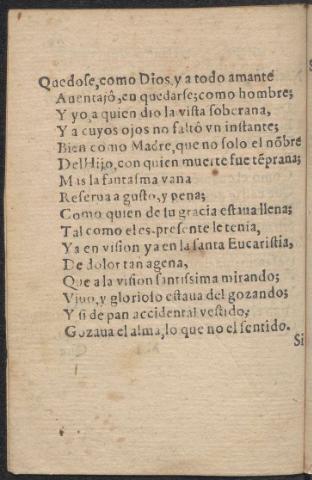 Quedose, como Dios, y a todo amante
Auentajô, en quedarse; como hombre;
Y yo, a quien dio la vista soberana,
Y a cuyos ojos no faltô vn instante;
Bien como Madre, que no solo el nõbre
Del Hijo, con quien muerte fue tẽprana;
Mas la fantasma vana
Reserua a gusto, y pena;
Como quien de tu gracia estaua llena;
Tal como el es, presente le tenia,
Ya en vision ya en la santa Eucaristia,
De dolor tan agena,
Que a la vision santissima mirando;
Viuo, y glorioso estaua del gozando;
Y si de pan accidental vestido;
Gozaua el alma, lo que no el sentido.
Si